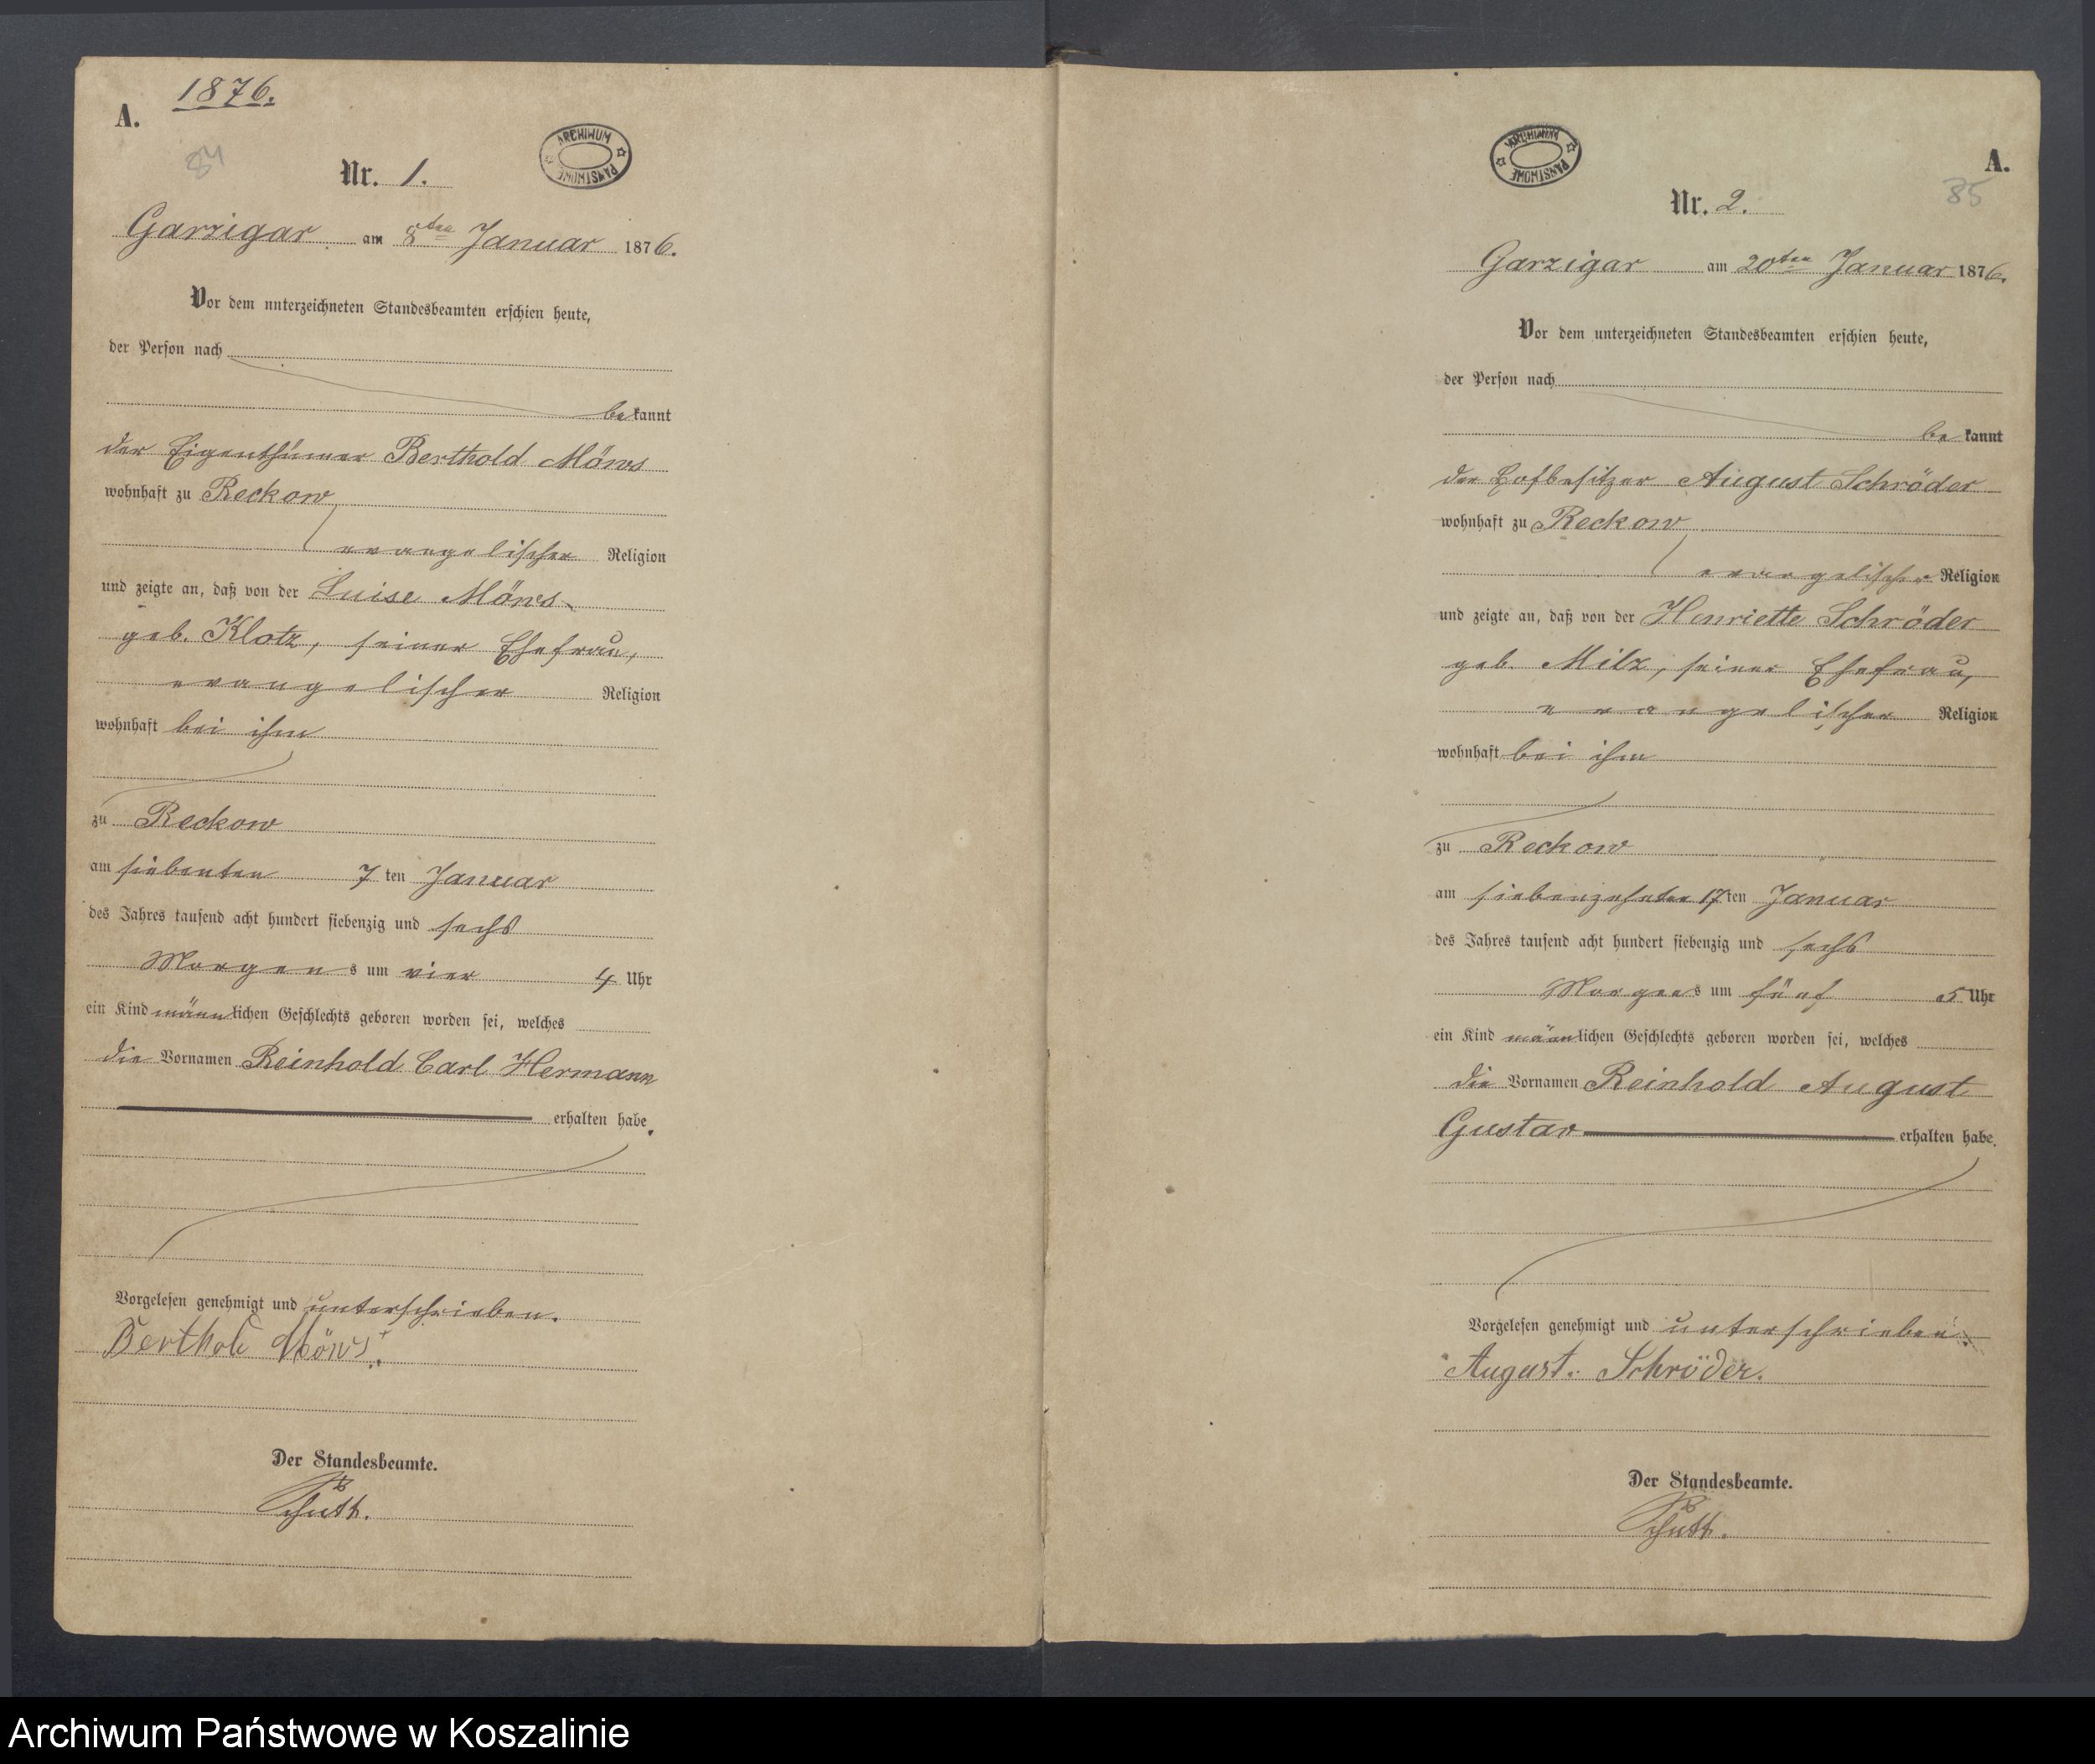 1876.
A.
84
Nr. 1.
ARCHIWUM PAŃSTWOWE
Garzigar am 8ten Januar 1876.
Vor dem unterzeichneten Standesbeamten erschien heute,
der Person nach
bekannt
der Eigenthümer Berthold Möws
wohnhaft zu Reckow
evangelischer Religion
und zeigte an, daß von der Luise Möws
geb. Klotz, seiner Ehefrau,
evangelischer Religion
wohnhaft bei ihm
zu Reckow
am siebenten 7ten Januar
des Jahres tausend acht hundert siebenzig und sechs
Morgens um vier 4 Uhr
ein Kind männlichen Geschlechts geboren worden sei, welches
die Vornamen Reinhold Carl Hermann
erhalten habe.
Vorgelesen genehmigt und unterschrieben.
Berthold Möws
Der Standesbeamte.
ARCHIWUM PAŃSTWOWE
A.
85
Nr. 2.
Garzigar am 20ten Januar 1876.
Vor dem unterzeichneten Standesbeamten erschien heute,
der Person nach
bekannt
der Hofbesitzer August Schröder
wohnhaft zu Reckow
evangelischer Religion
und zeigte an, daß von der Henriette Schröder
geb. Milz, seiner Ehefrau,
evangelischer Religion
wohnhaft bei ihm
zu Reckow
am siebenzehnten 17ten Januar
des Jahres tausend acht hundert siebenzig und sechs
Morgens um fünf 5 Uhr
ein Kind männlichen Geschlechts geboren worden sei, welches
die Vornamen Reinhold August
Gustav erhalten habe.
Vorgelesen genehmigt und unterschrieben.
August Schröder.
Der Standesbeamte.
Archiwum Państwowe w Koszalinie